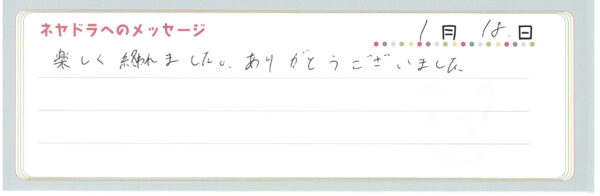 ネヤドラへのメッセージ
1月 18.日
楽しく終われました。ありがとうございました